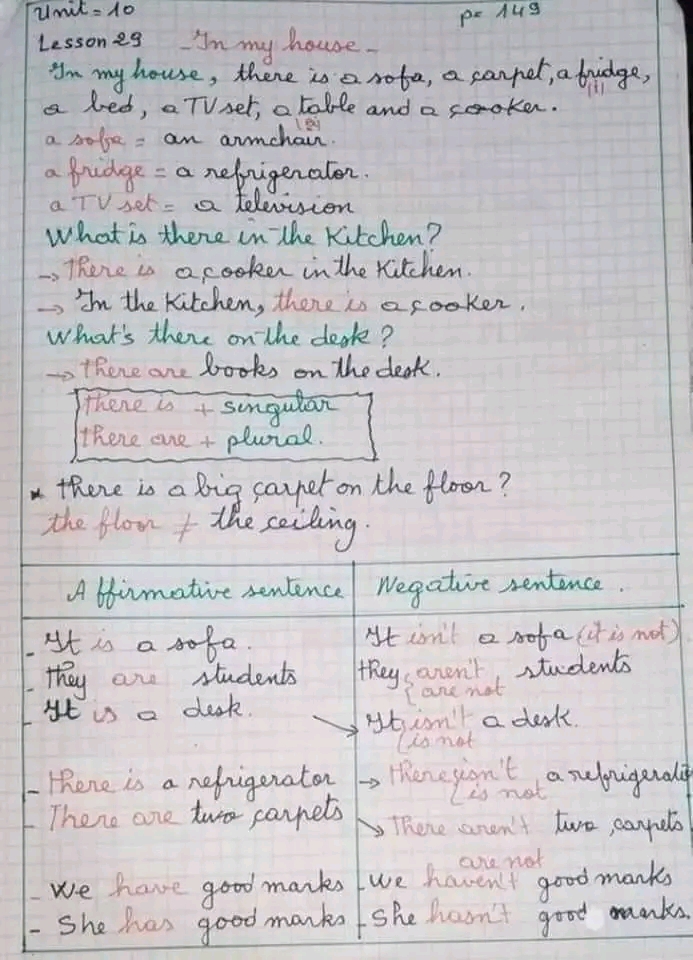 Unit = 10
p= 149
Lesson 29 - In my house -
In my house, there is a sofa, a carpet, a fridge,
a bed, a TV set, a table and a cooker.
a sofa = an armchair.
a fridge = a refrigerator.
a TV set = a television
What is there in the Kitchen?
→ There is a cooker in the Kitchen.
→ In the Kitchen, there is a cooker.
What's there on the desk?
→ there are books on the desk.
there is + singular
there are + plural.
* there is a big carpet on the floor?
the floor ≠ the ceiling.
Affirmative sentence
Negative sentence.
- It is a sofa.
It isn't a sofa (it is not)
- They are students
they aren't students
are not
- It is a desk.
→ It isn't a desk.
is not
- there is a refrigerator
→ there isn't a refrigerat
is not
- There are two carpets
→ There aren't two carpets
are not
- We have good marks
- We haven't good marks
- She has good marks
- She hasn't good marks.